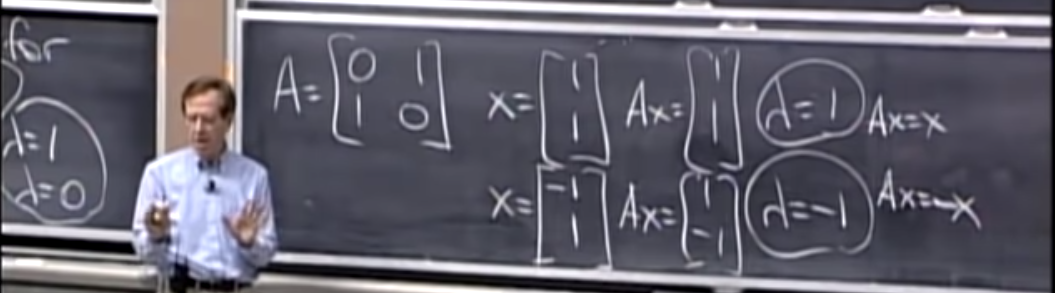 for
λ=1
λ=0
A=[0 1
1 0] x=[1
1] Ax=[1
1] λ=1 Ax=x
x=[-1
1] Ax=[1
-1] λ=-1 Ax=-x